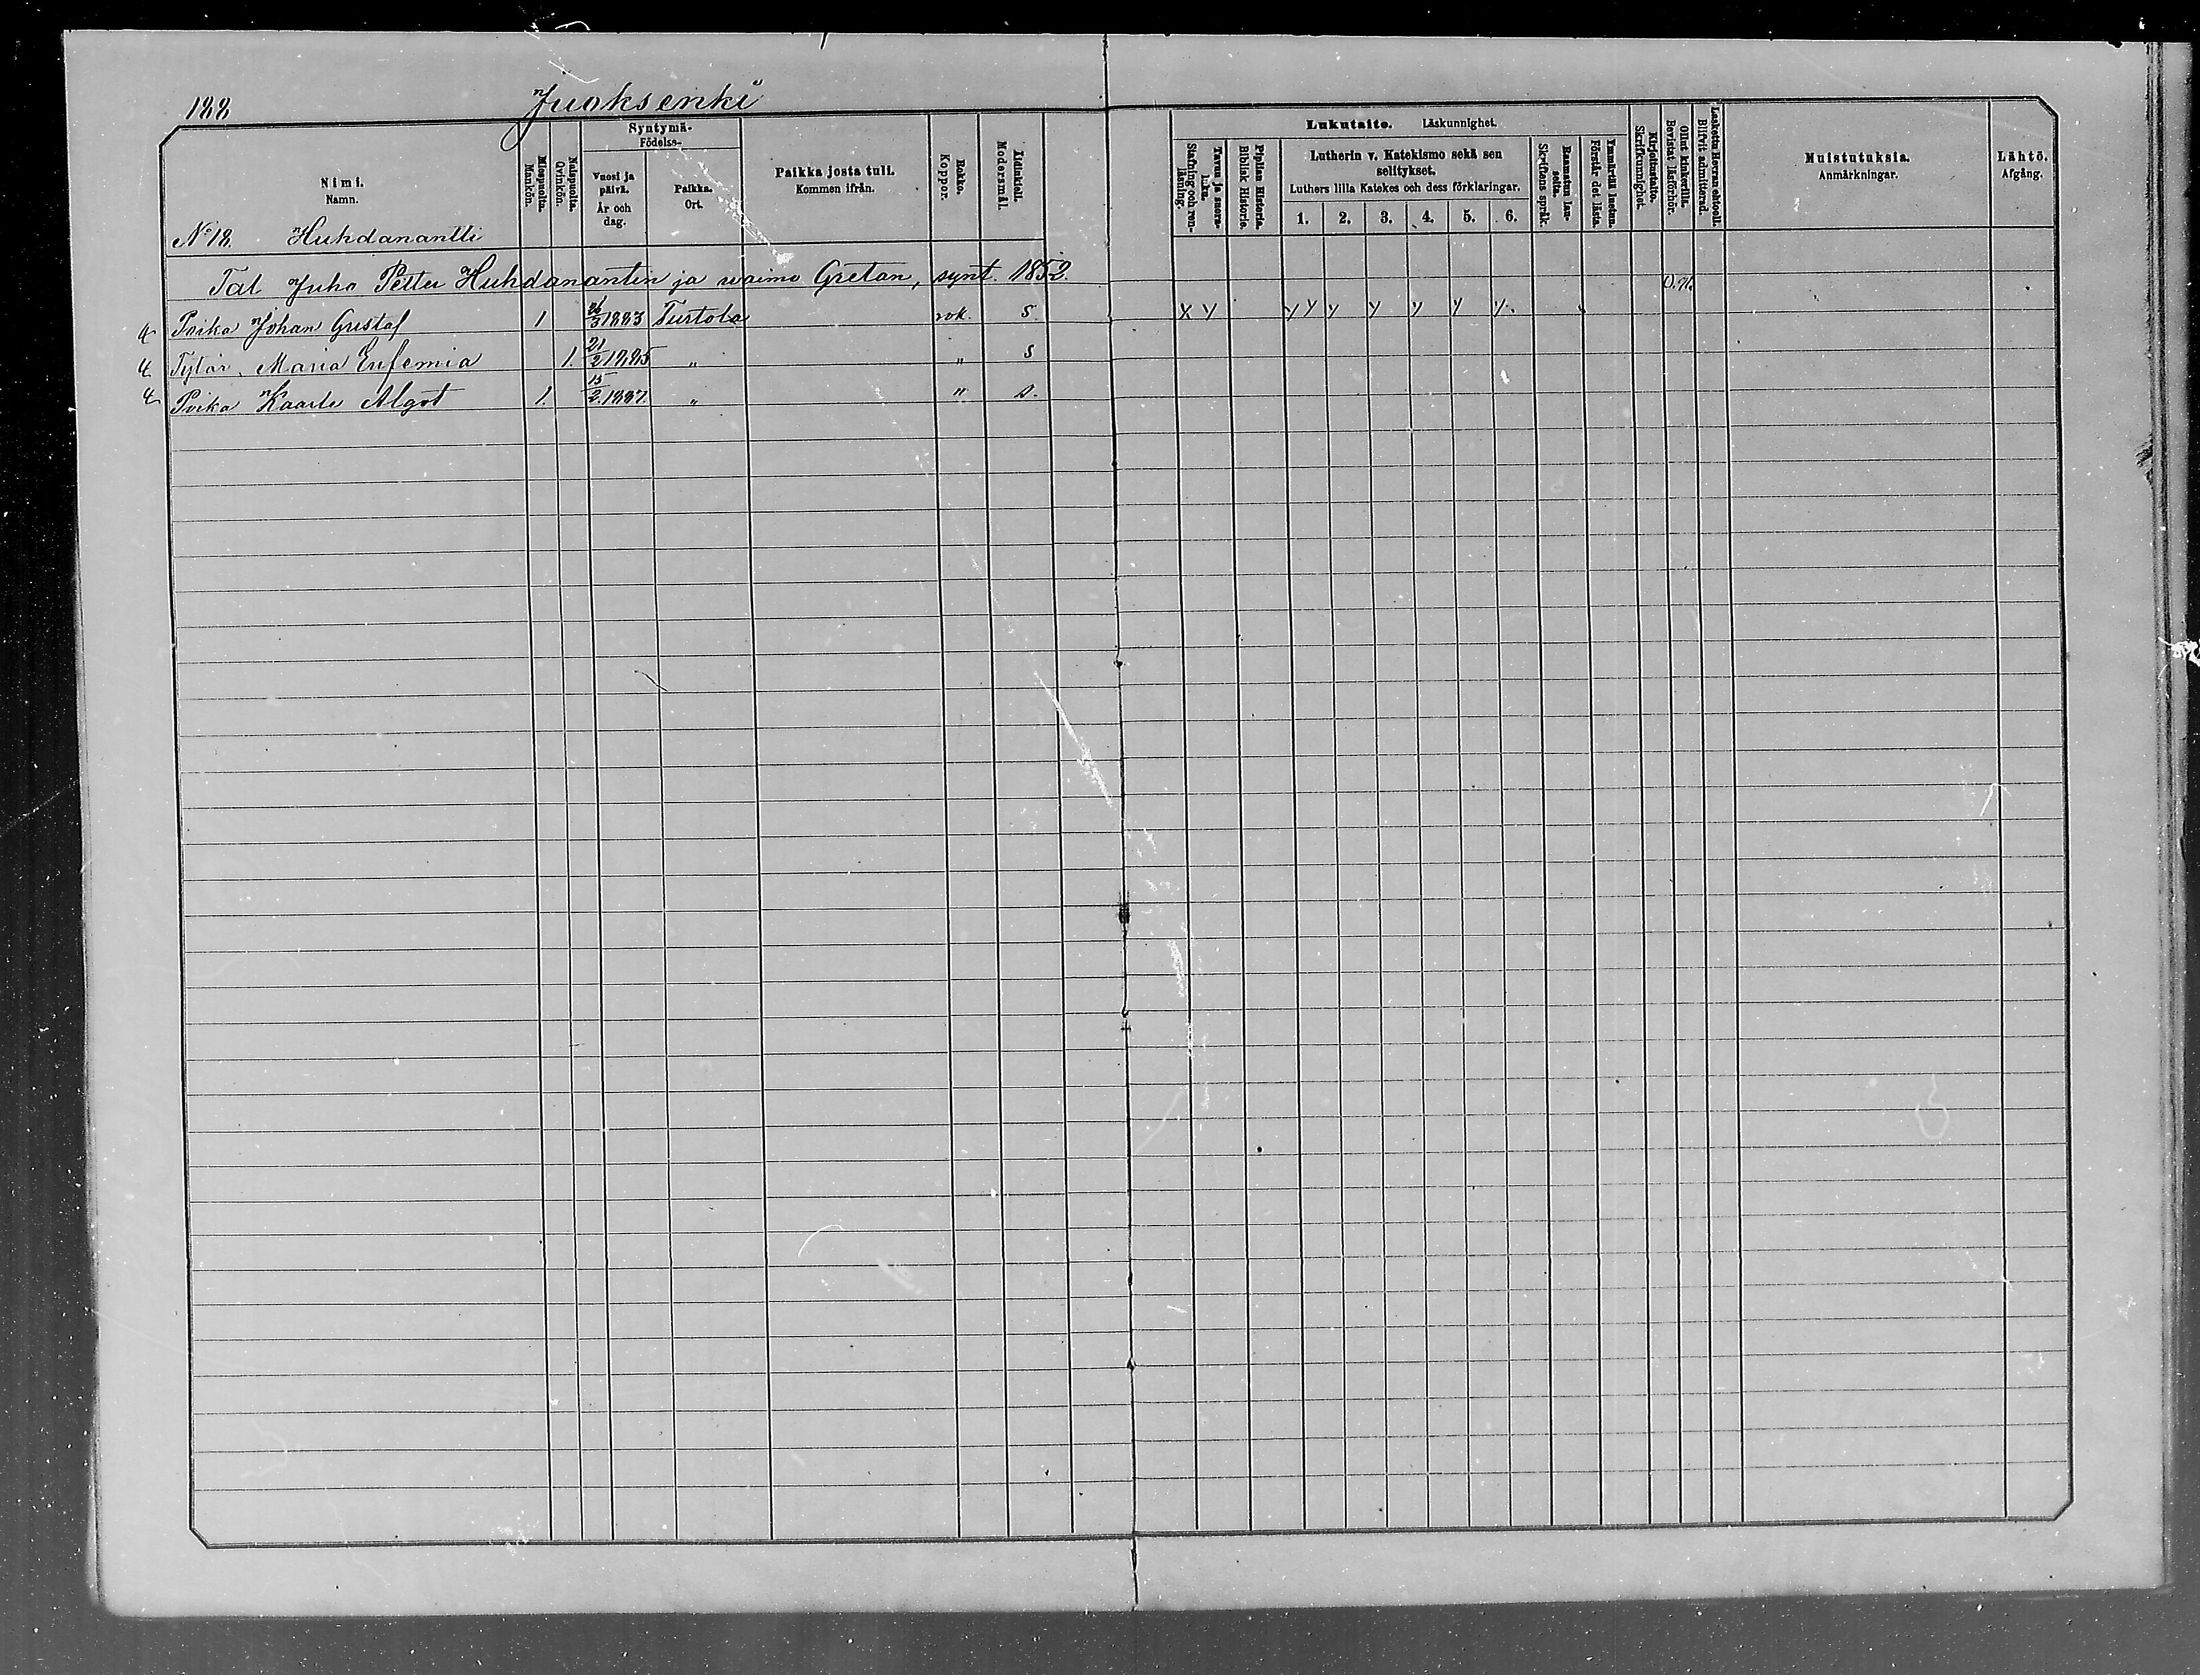 188 Juoksenki
Nimi. Namn.
Miespuolia. Mankön.
Naispuolia. Qvinkön.
Syntymä- Födelse-
Vuosi ja päivä. År och dag.
Paikka. Ort.
Paikka josta tuli. Kommen ifrån.
Rokko. Koppor.
Äidinkieli. Modersmål.
Lukutaito. Läskunnighet.
Tavuu ja suora-luku. Stafning och ren-läsning.
Piplian Historia. Biblisk Historie.
Lutherin v. Katekismo sekä sen selitykset.
Luthers lilla Katekes och dess förklaringar.
1. 2. 3. 4. 5. 6.
Raamatun lau-seita. Skriftens språk.
Ymmärtää luetun. Förstår det lästa.
Kirjoitustaito. Skrifkunnighet.
Ollut kinkerillä. Bevistat läsförhör.
Laskettu Herran ehtooll. Blifvit admitterad.
Muistutuksia. Anmärkningar.
Lähtö. Afgång.
No 18. Huhdanantti
Tal Juho Petter Huhdanantin ja waimo Gretan, synt. 1852.
4 Poika Johan Gustaf 1 26/3 1883 Turtola rok. S. X Y Y Y Y Y Y Y Y.
4 Tytär Maria Eufemia 1. 21/2 1885 " " S
4 Poika Kaarle Algot 1. 15/2 1887. " " S.